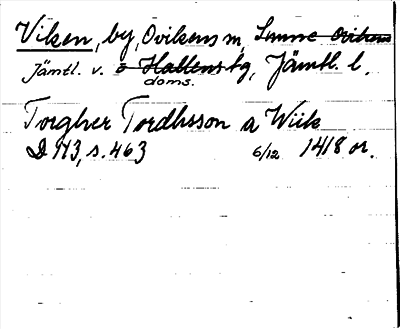 Viken, by, Ovikens sn, Sunne Ovikens
Jämtl. v. o Hallens tg, Jämtl. l.
doms.
Torgher Tordhsson a Wiik
D Y13, s. 463 6/12 1418 or.